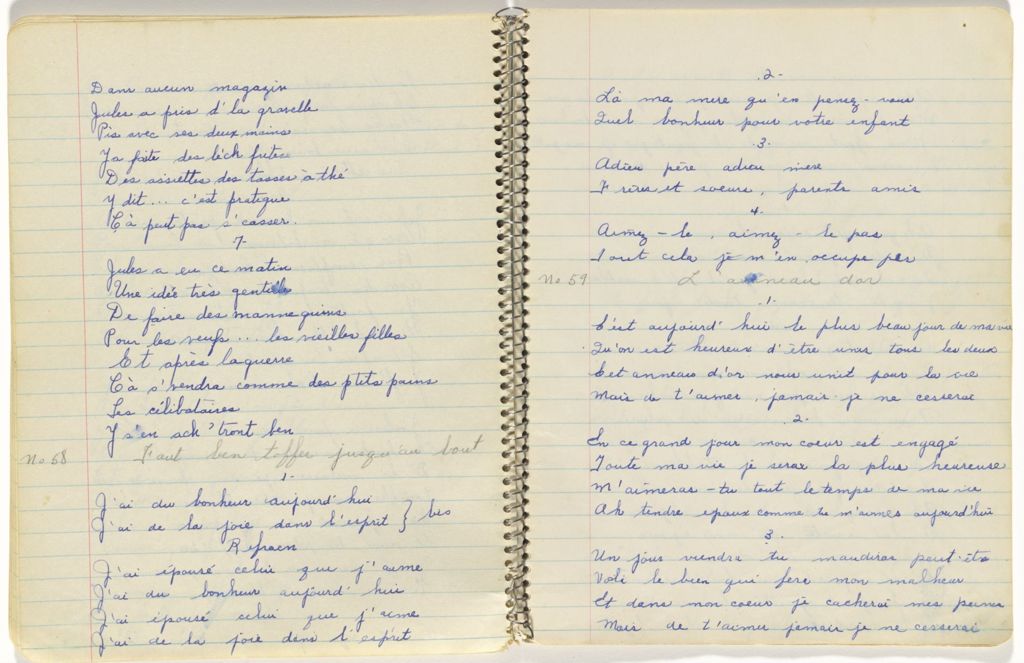 Dans aucun magazin
Jules a pris d'la gravelle
Pis avec ses deux mains
Ya faite des bèck
Des assiettes des tasses à thé
Y dit... c'est pratique
Çà peut pas s'casser.
7-
Jules a eu ce matin
Une idée très gentille
De faire des mannequins
Pour les veufs... les vieilles filles
Et après laguerre
Cà s'vendra comme des ptits pains
Les célibataires
Y s'en ach'tront ben
No 58 Faut ben toffer jusqu'au bout
1-
J'ai du bonheur aujourd'hui
J'ai de la joie dans l'esprit } bis
Refraen
J'ai épousé celui que j'aime
J'ai du bonheur aujourd'hui
J'ai épousé celui que j'aime
J'ai de la joie dans l'esprit
.2-
Là ma mere qu'en pensez-vous
Quel bonheur pour votre enfant
.3.
Adieu père adieu mere
Frères et soeurs, parents amis
4-
Aimez-le, aimez-le pas
Tout cela je m'en occupe pas
No 59 L'anneau dor
.1-
C'est aujourd'hui le plus beau jour de ma vie
Qu'on est heureux d'être unis tous les deux
Cet anneau d'or nous unit pour la vie
Mais de t'aimer, jamais je ne cesserai
.2-
En ce grand jour mon coeur est engagé
Toute ma vie je serai la plus heureuse
M'aimeras-tu tout le temps de ma vie
Ah tendre epoux comme tu m'aimes aujourd'hui
3-
Un jour viendra tu maudiras peut-être
Voli le bien qui fera mon malheur
Et dans mon coeur je cacherai mes peines
Mais de t'aimer jamais je ne cesserai